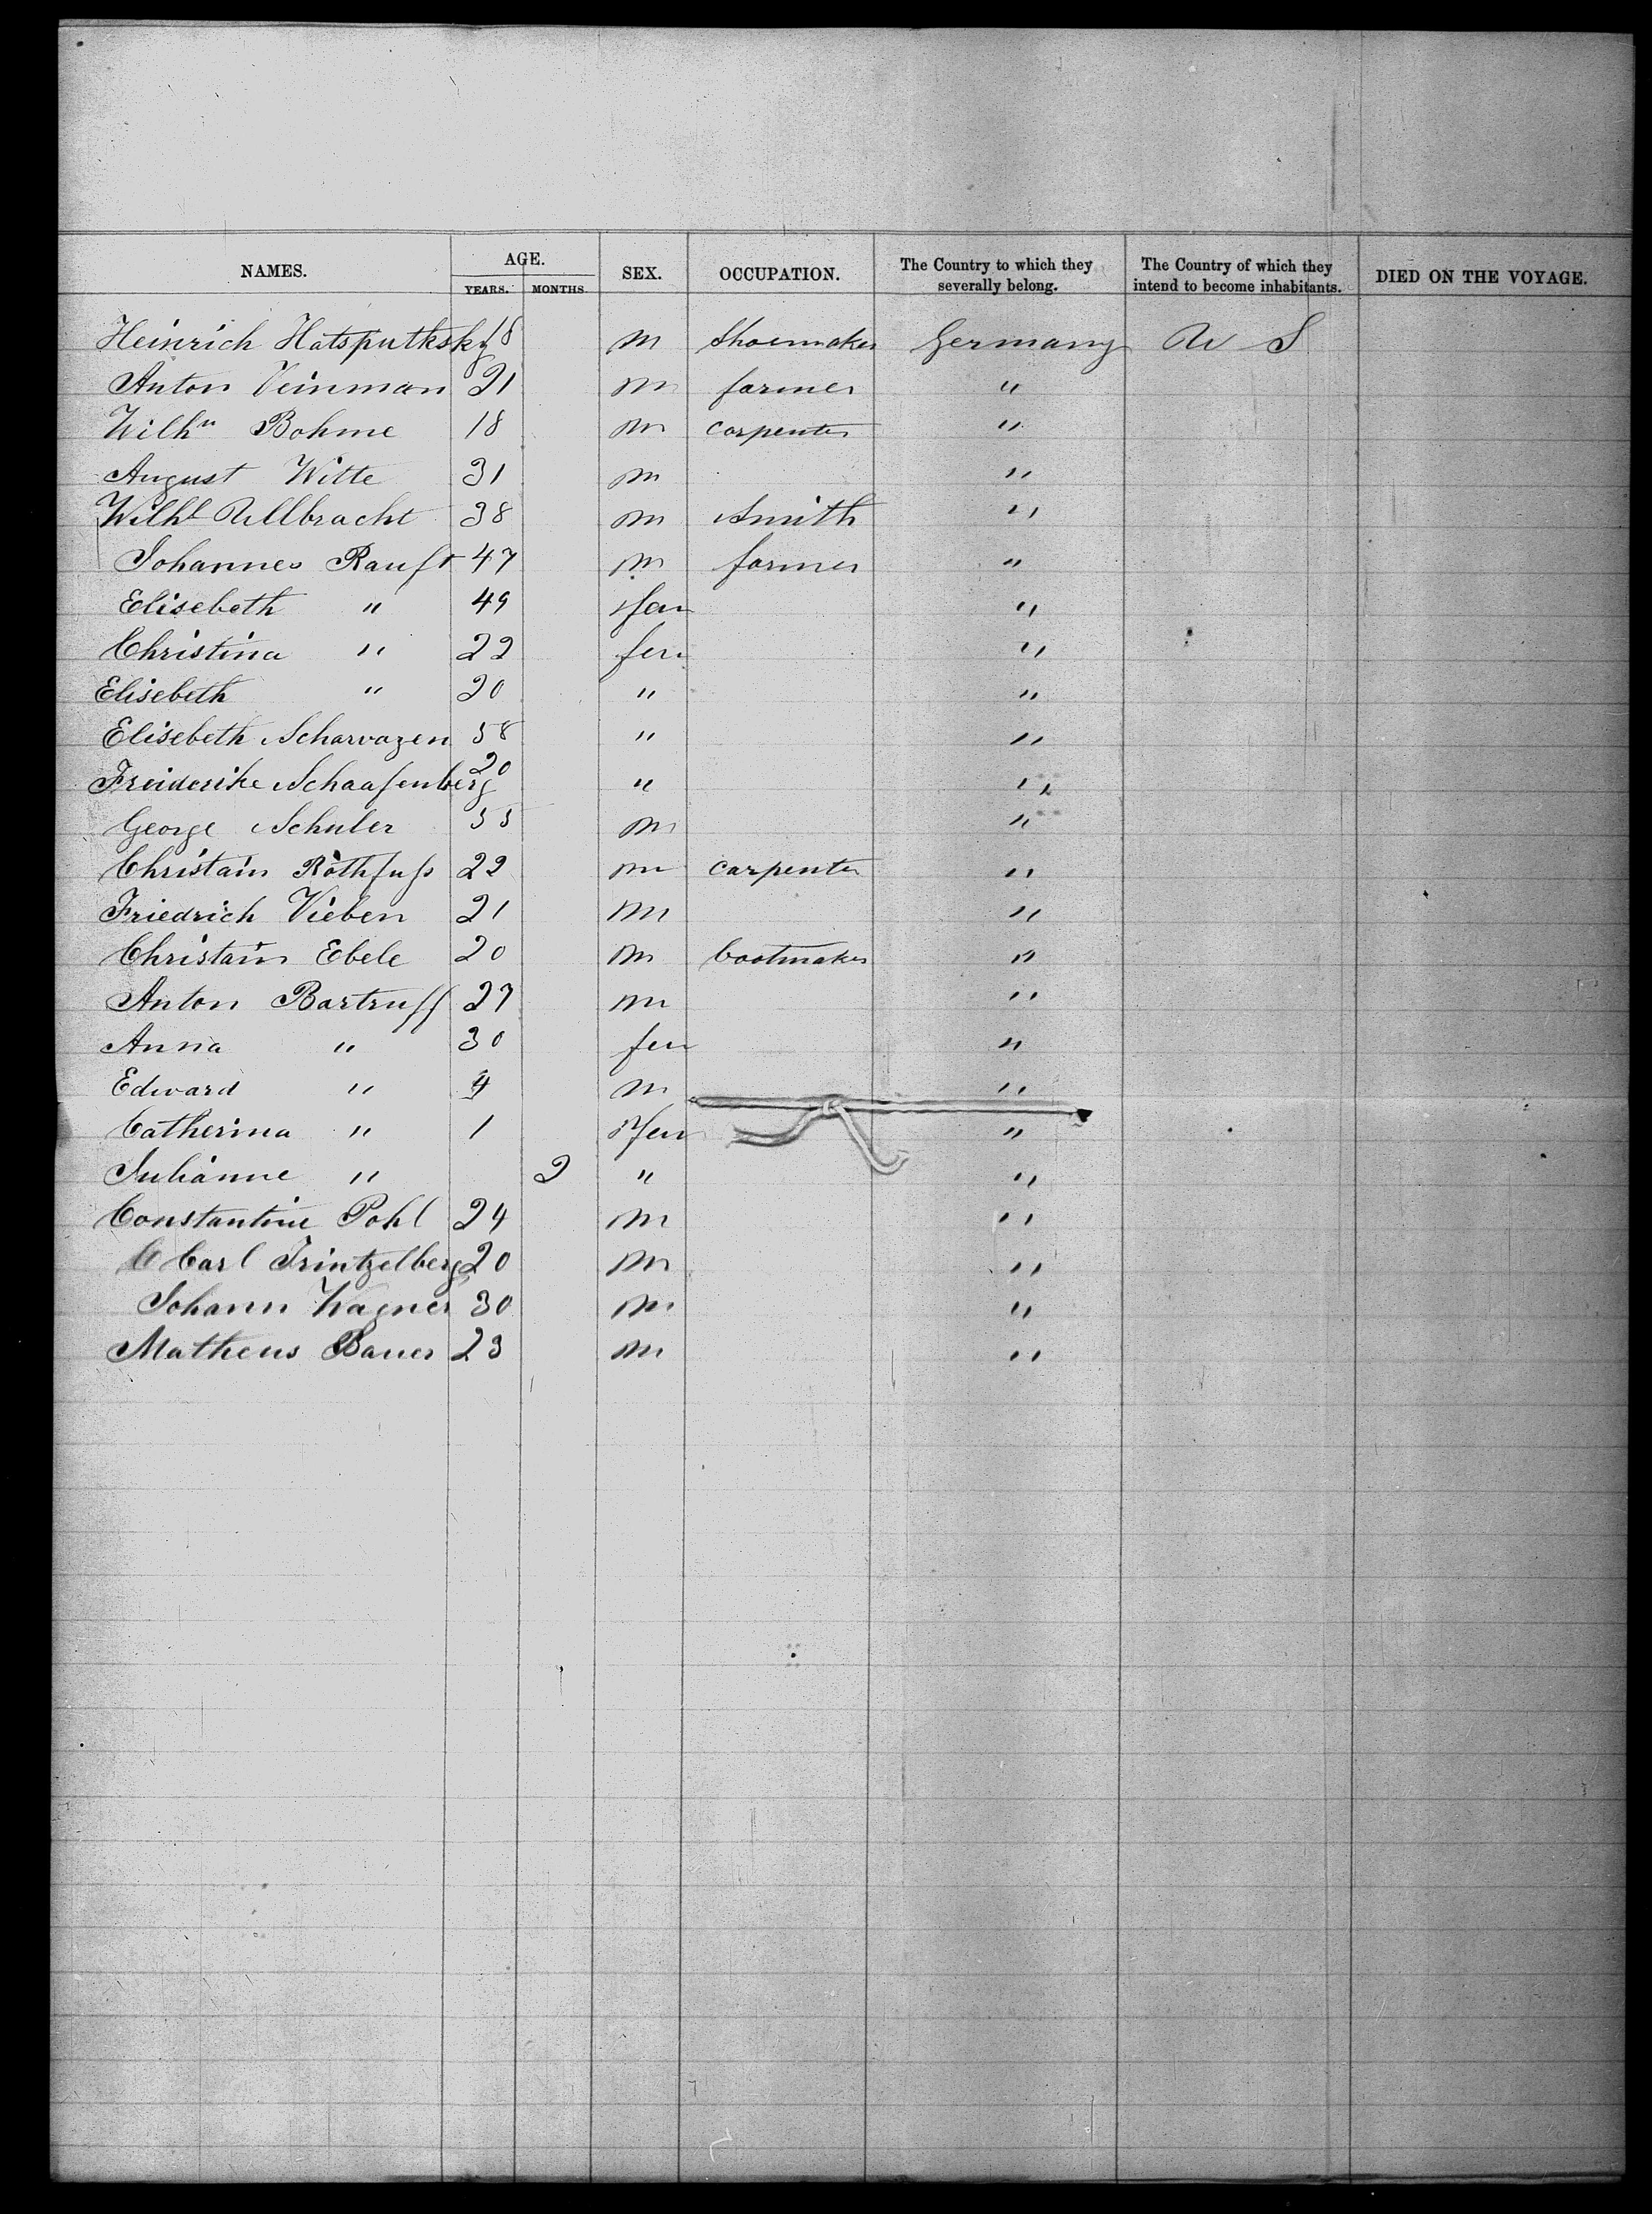 NAMES. AGE. YEARS. MONTHS. SEX. OCCUPATION. The Country to which they severally belong. The Country of which they intend to become inhabitants. DIED ON THE VOYAGE.
Heinrich Hatsputksky 18 m Shoemaker Germany U S
Anton Veinman 21 m farmer "
Wilhm Bohme 18 m carpenter "
August Witte 31 m "
Wilhl Ullbracht 38 m Smith "
Johannes Rauft 47 m farmer "
Elisebeth " 49 fem "
Christina " 22 fem "
Elisebeth " 20 " "
Elisebeth Scharvazen 58 " "
Freiderike Schaafenberg 20 " "
George Schuler 55 m "
Christain Rothfuss 22 m carpenter "
Friedrich Vieben 21 m "
Christain Ebele 20 m bootmaker "
Anton Bartruff 27 m "
Anna " 30 fem "
Edward " 4 m "
Catherina " 1 fem "
Julianne " 2 " "
Constantine Pohl 24 m "
C Carl Trintzelberg 20 m "
Johann Wagner 30 m "
Matheus Bauer 23 m "